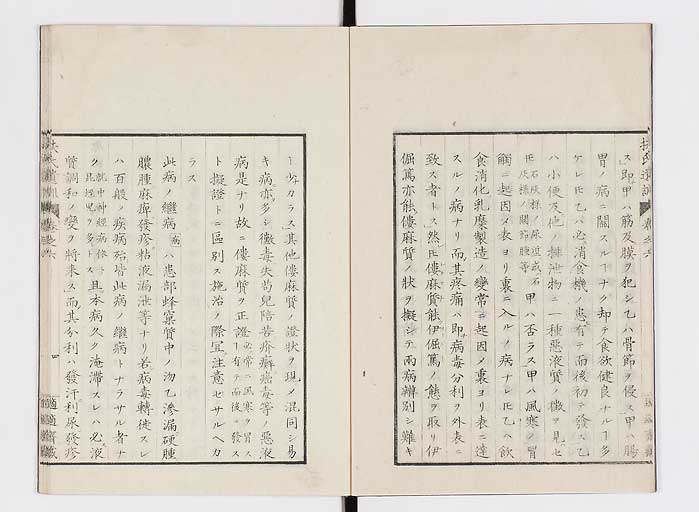 扶氏遺訓 卷之六
ス」即甲ハ筋及膜ヲ犯シ乙ハ骨節ヲ侵ス」甲ハ腸
胃ノ病ニ關スルヿナク却テ食欲健良ナルヿ多
ケレ𪜈乙ハ必消食機ノ患有テ而後初テ發ス乙
ハ小便及他ノ排泄物ニ一種惡液質ノ徴ヲ見セ
𪜈石灰様ノ尿渣或石灰様關節腫等甲ハ否ラス甲ハ風寒ノ冒
觸ニ起因メ表ヨリ裏ニ入ルノ病ナレ𪜈乙ヘ飲
食消化乳糜製造ノ變常ニ起因メ裏ヨリ表ニ達
スルノ病ナリ而其疼痛ハ即病毒分利ヲ外表ニ
致ス者トス」然𪜈僂麻質能伊倔篤ノ態ヲ取リ伊
倔篤亦能僂麻質ノ状ヲ擬シテ兩病辨別シ難キ
ヿ少カラス」其他僂麻質ノ證状ヲ現メ混同シ易
キ病亦多シ黴毒失苟兒陪苦疥癬癌毒等ノ惡液
病是ナリ故ニ僂麻質ヲ正證必常ニ風寒ヲ冒スヿ有テ而後ニ發ス
ト擬證トニ區別ス施治ノ際宜注意セサルヘカ
ラス
此病ノ繼病病ハ患部蜂窠質中ノ沕乙滲漏硬腫
膿腫麻痺發疹粘液漏泄等ナリ若病毒轉徙スレ
ハ百般ノ疾病殆皆此病ノ繼病トナラサル者ナ
ク就中神經病ヲ多トス且本病久ク淹滞スレハ必液
質調和ノ變ヲ將來ス」而其分利ハ發汗利尿發疹
適適齋藏